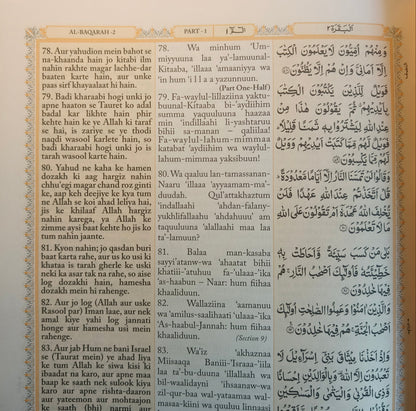 AL-BAQARAH -2
PART - 1
الٓمّٓ ١
اَلْبَقَرَة ٢
78. Aur yahudion mein bahot se
na-khaanda hain jo kitabi ilm
nahin rakhte magar lachhe-dar
baaten karte hain, aur unke paas
sirf khayaalaat hi hain.
79. Badi kharaabi hogi unki jo
apne haaton se Tauret ko adal
badal kar likhte hain phir
kehte hain ke ye Allah ki taraf
se hai, is zariye se ye thodi
naqdi wasool karlete hain, so
badi kharaabi hogi unki jo is
tarah wasool karte hain.
80. Yahud ne kaha ke hamen
dozakh ki aag hargiz nahin
chhu'egi magar chand roz ginti
ke, aap keh deejive ke kya tum
ne Allah se koi ahad leliya hai,
jis ke khilaaf Allah hargiz
nahin karega, ya Allah ke
zimme aysi baat kehte ho jis ko
tum nahin jaante.
81. Kyon nahin; jo qasdan buri
baat karta rahe, aur us ko usi ki
khataa is tarah gherle ke uski
neki ka asar tak na rahe, so aise
log dozakhi hain, hamesha
dozakh mein hi rahenge.
82. Aur jo log (Allah aur uske
Rasool par) Iman laae, aur nek
amal kiye vahi log jannati
honge aur hamesha usi mein
rahenge.
83. Aur jab Hum ne bani Israel
se (Taurat mein) ye ahad liya
ke tum Allah ke siwa kisi ki
ibaadat na karo, aur apne maa
baap ke saath nek sulook kiya
karo aur apne rishta-daaron
aur yateemon aur mohtaajon
ke saath (bhi) narmi aur
78. Wa minhum 'Um-
miyyuuna laa ya'-lamuunal-
Kitaaba, 'illaaa 'amaaniyya wa
'in hum 'i l l a a yazunnuun.
(Part One-Half)
79. Fa-waylul-lillaziina yaktu-
buunal-Kitaaba bi-'aydiihim
summa yaquuluuna haazaa
min 'indillaahi li-yashtaruu
bihii sa-manan – qaliilaa!
Fa-waylul-lahum-mimmaa
katabat' aydiihim wa-waylul-
lahum-mimmaa yaksibuun!
80. Wa qaaluu lan-tamassanan-
Naaru 'illaaa 'ayyaamam-ma'-
duudah. Qul'attakhaztum
'indallaahi 'ahdan-falany-
yukhlifallaahu 'ahdahuuu' am
taquuluuna 'alallaahi maa laa
ta'-lamuun?
81. Balaa man-kasaba
sayyi'atanw-wa 'ahaatat bihii
khatiii-'atuhuu fa-'ulaaa-'ika
'as-haabun – Naar: hum fiihaa
khaaliduun.
82. Wallaziina 'aamanuu
wa 'amilus-saalihaati 'ulaaa-'ika
'As-haabul-Jannah: hum fiihaa
khaaliduun.
(Section 9)
83. Wa'iz 'akhaznaa
Miisaaqa Baniii-'Israaa-'iila
laa ta'-buduuna 'illallaah wa
bil-waalidayni 'ihsaanaw-wa
zil-qur-baa wal-yataamaa wal-
masaa-kiini wa quuluu linnaasi
وَمِنْهُمْ اُمِّيُّوْنَ لَا يَعْلَمُوْنَ الْكِتٰبَ
اِلَّآ اَمَانِيَّ وَاِنْ هُمْ اِلَّا يَظُنُّوْنَ
فَوَيْلٌ لِّلَّذِيْنَ يَكْتُبُوْنَ الْكِتٰبَ
بِاَيْدِيْهِمْ ثُمَّ يَقُوْلُوْنَ هٰذَا مِنْ
عِنْدِ اللّٰهِ لِيَشْتَرُوْا بِهٖ ثَمَنًا قَلِيْلًا
فَوَيْلٌ لَّهُمْ مِّمَّا كَتَبَتْ اَيْدِيْهِمْ وَ
وَيْلٌ لَّهُمْ مِّمَّا يَكْسِبُوْنَ
وَقَالُوْا لَنْ تَمَسَّنَا النَّارُ اِلَّآ اَيَّامًا مَّعْدُوْدَةً
قُلْ اَتَّخَذْتُمْ عِنْدَ اللّٰهِ عَهْدًا فَلَنْ
يُّخْلِفَ اللّٰهُ عَهْدَهٗٓ اَمْ تَقُوْلُوْنَ عَلَى اللّٰهِ
مَا لَا تَعْلَمُوْنَ
بَلٰى مَنْ كَسَبَ سَيِّئَةً وَّاَحَاطَتْ بِهٖ
خَطِيْٓـَٔتُهٗ فَاُولٰٓئِكَ اَصْحٰبُ النَّارِ هُمْ
فِيْهَا خٰلِدُوْنَ
وَالَّذِيْنَ اٰمَنُوْا وَعَمِلُوا الصّٰلِحٰتِ اُولٰٓئِكَ
اَصْحٰبُ الْجَنَّةِ هُمْ فِيْهَا خٰلِدُوْنَ
وَاِذْ اَخَذْنَا مِيْثَاقَ بَنِيْٓ اِسْرَآءِيْلَ لَا
تَعْبُدُوْنَ اِلَّا اللّٰهَ وَبِالْوَالِدَيْنِ اِحْسَانًا